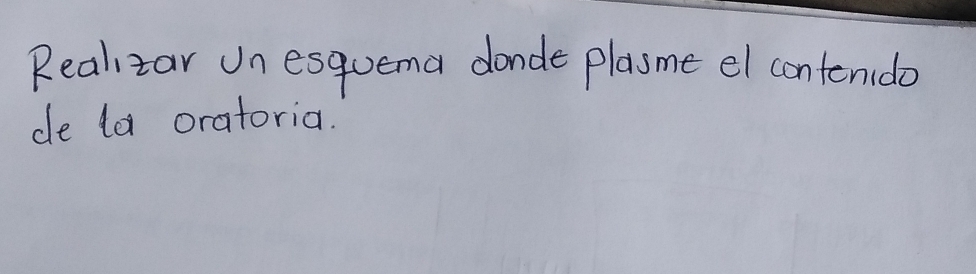 Realizar un esquema donde plasme el contenido
de la oratoria.